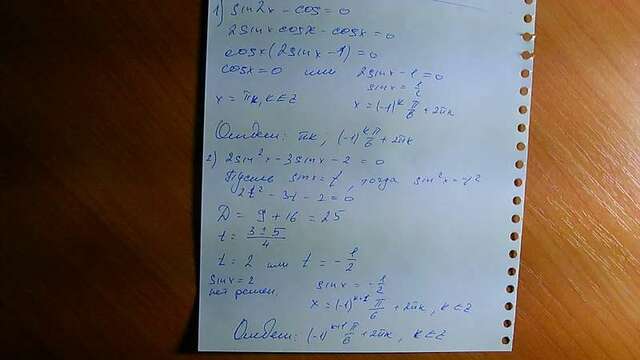 1) sin2x - cos = 0
2sinx cosx - cosx = 0
cosx(2sinx - 1) = 0
cosx = 0 или 2sinx - 1 = 0
sinx = 1/2
x = πk, k ∈ Z x = (-1)^k π/6 + 2πk
Ответ: πk, (-1)^k π/6 + 2πk
2) 2sin²x - 3sinx - 2 = 0
Пусть sinx = t, тогда sin²x = t²
2t² - 3t - 2 = 0
D = 9 + 16 = 25
t = (3±5)/4
t = 2 или t = -1/2
sinx = 2 sinx = -1/2
нет решен.
x = (-1)^(k+1) π/6 + 2πk, k ∈ Z
Ответ: (-1)^(k+1) π/6 + 2πk, k ∈ Z